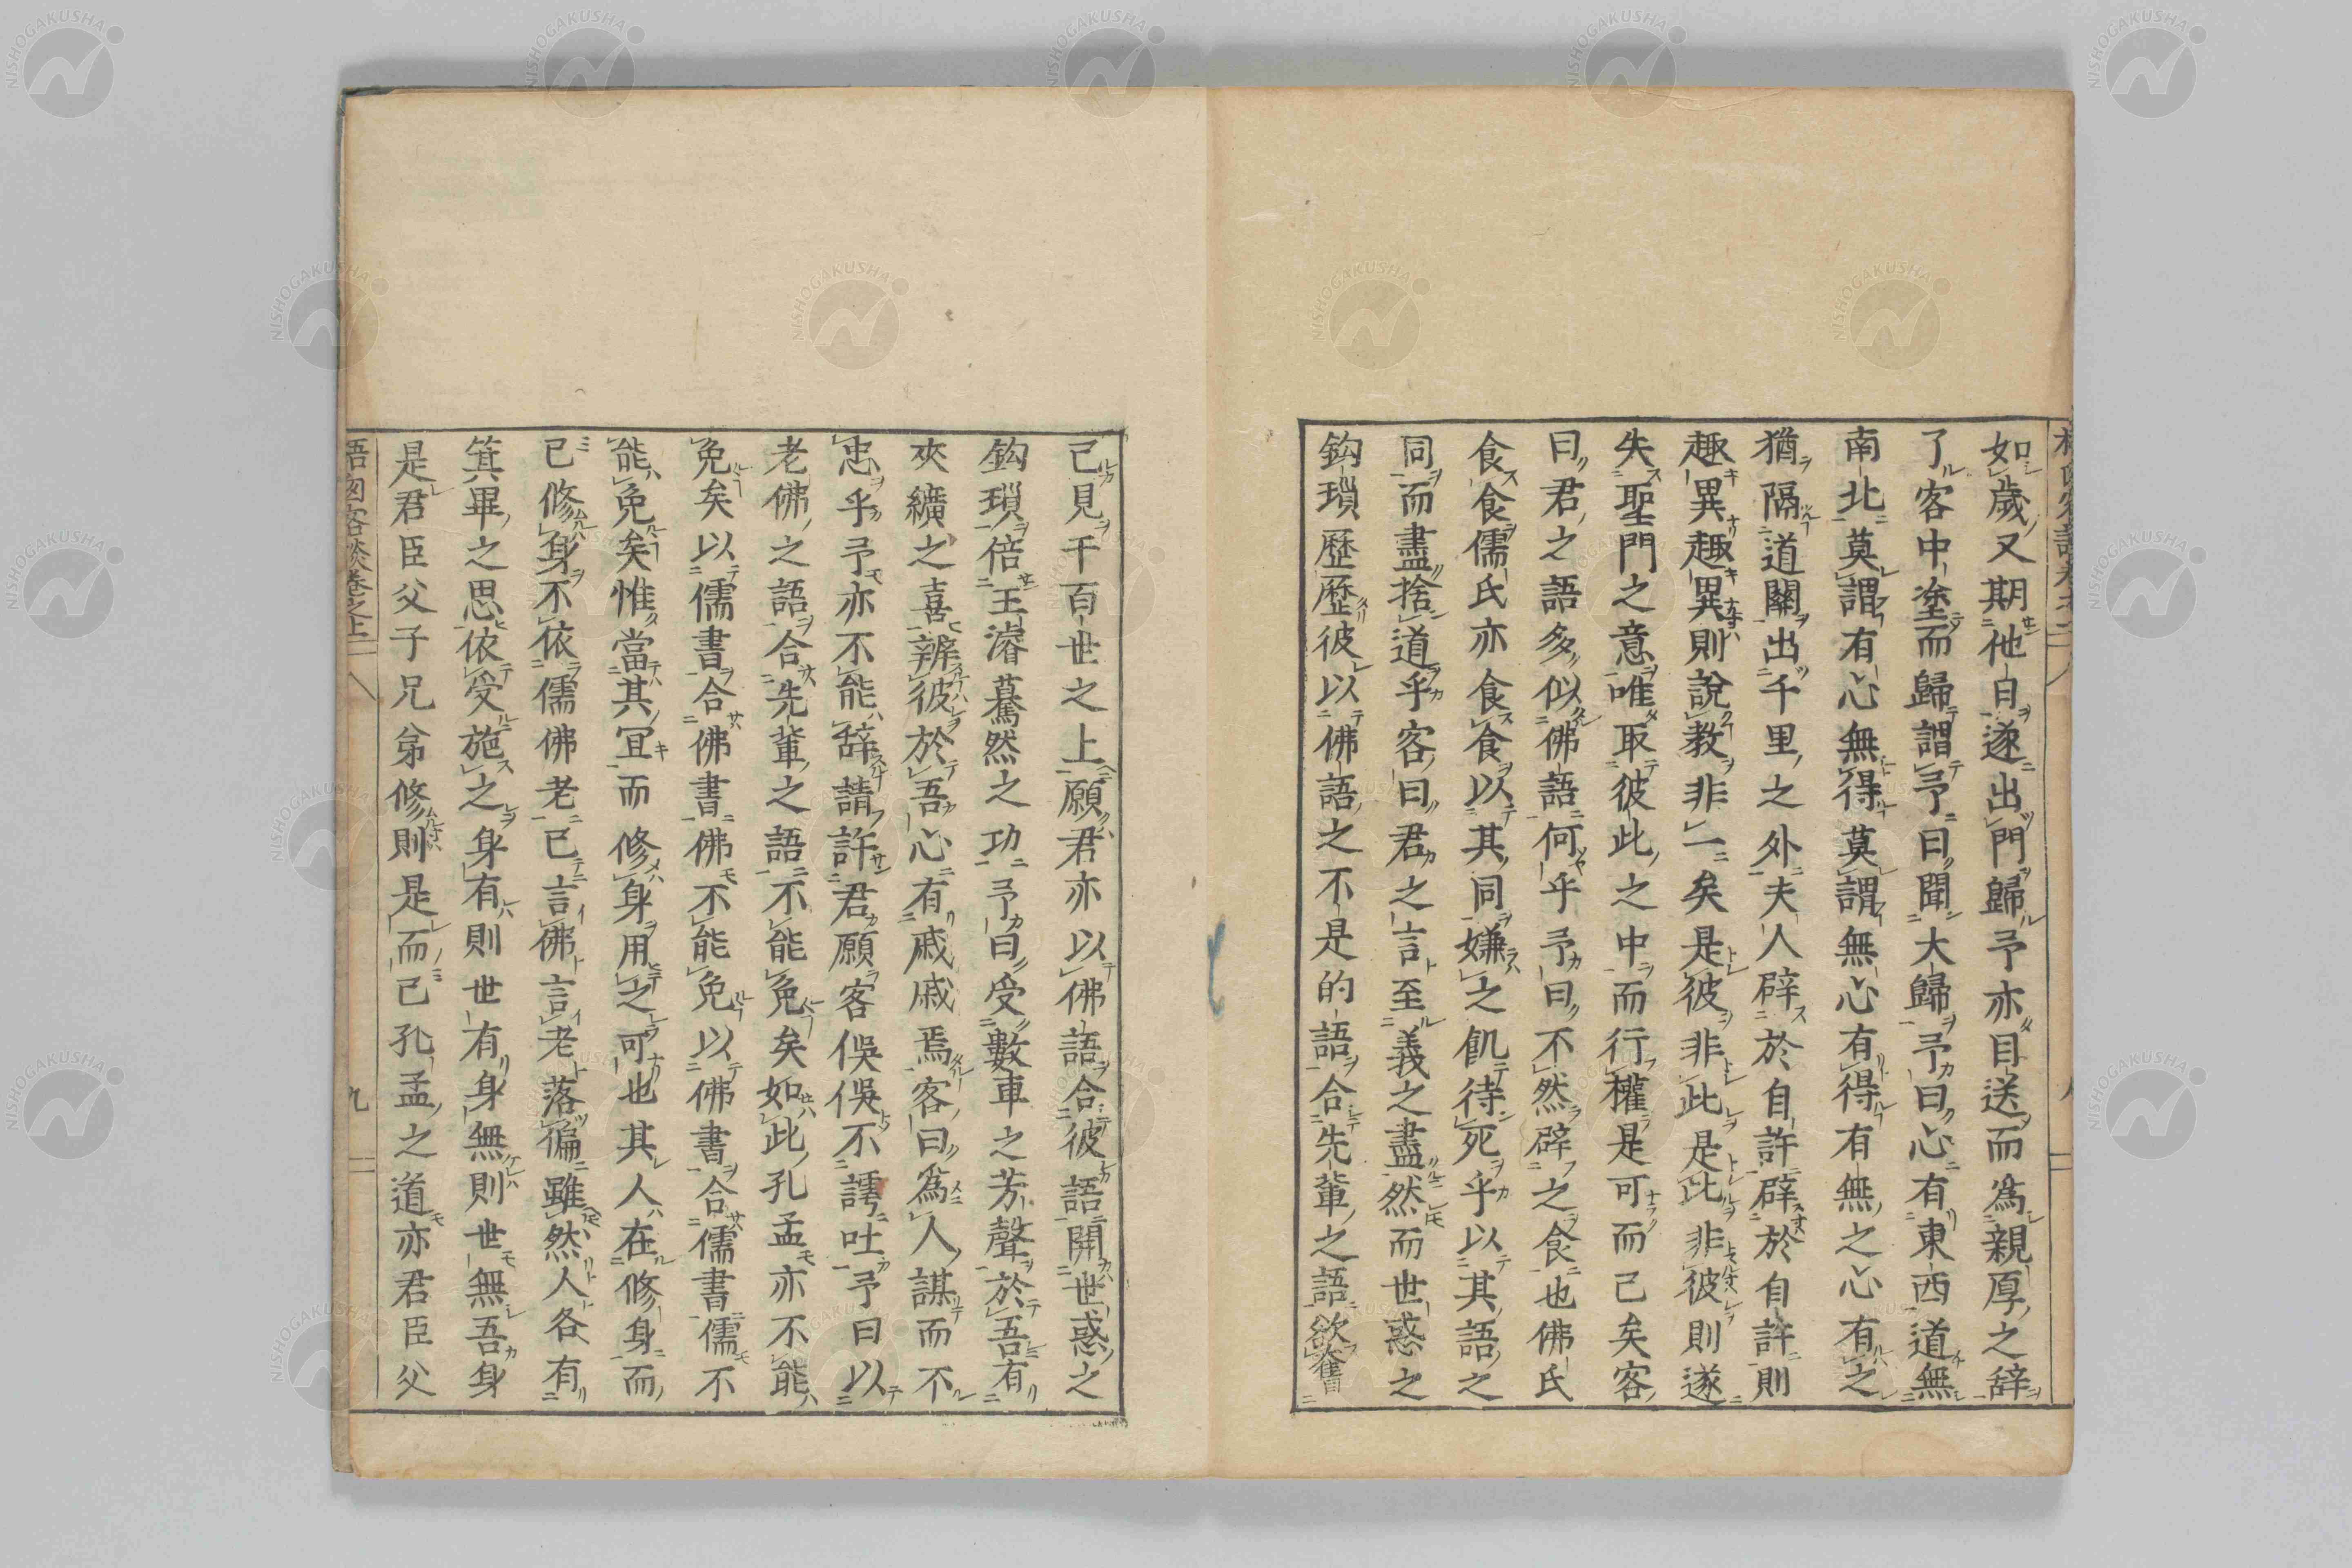 如歲又期他日遂出門歸予亦目送而為親厚之辞
了客中塗而歸謂予曰聞大歸予曰心有東西道無
南北莫謂有心無得莫謂無心有得有無之心有之
猶隔道關出千里之外夫人辟於自許辟於自許則
趣異趣異則說教非一矣是彼非此是此非彼則遂
失聖門之意唯取彼此之中而行權是可而已矣客
曰君之語多似佛語何乎予曰不然辟之食也佛氏
食食儒氏亦食食以其同嫌之飢待死乎以其語之
同而盡捨道乎客曰君之言至義之盡然而世惑之
鈎瑣歷歷彼以佛語之不是的語合先輩之語欲奮
己見千百世之上願君亦以佛語合彼語開世惑之
鈎瑣倍王濬驀然之功予曰受數車之芳聲於吾有
夾纊之喜辨彼於吾心有戚戚焉客曰為人謀而不
忠乎予亦不能辞請許君願客俁俁不譁吐予曰以
老佛之語合先輩之語不能免矣如此孔孟亦不能
免矣以儒書合佛書佛不能免以佛書合儒書儒不
能免矣惟當其冝而修身用之可也其人在修身而
已修身不依儒佛老已言佛言老落偏雖然人各有
箕畢之思依受施之身有則世有身無則世無吾身
是君臣父子兄弟修則是而已孔孟之道亦君臣父
梧窓客談卷之上
九
NISHOGAKUSHA